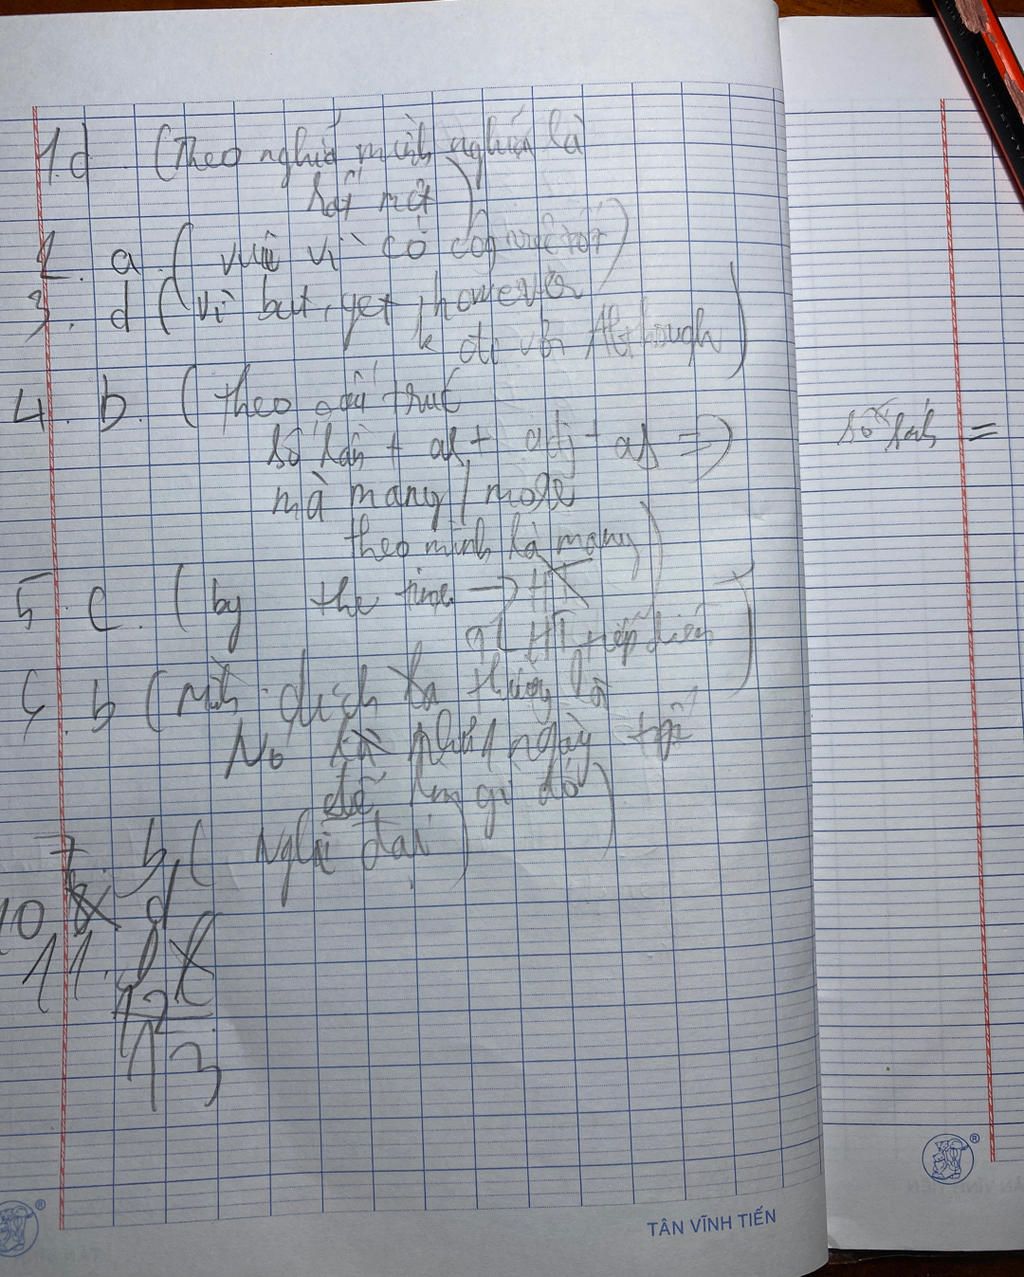 1.d (Theo nghĩa mình nghĩa là
hơi mơ)
2. a. ( vui vì có công việc tốt)
3. d ( vì but, yet, however
k đi với Although)
4. b. ( theo cấu trúc
số lần + as + adj + as =>
mà many / more
theo mình là many)
5. c. ( by the time -> HT
HT tiếp diễn)
b ( Mình dịch ra
No ngày
để làm gì đó)
7 b, ( Nghĩ đại)
10 d
11.
12
13
số lần =
TÂN VĨNH TIẾN